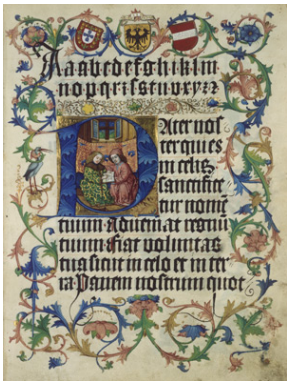 A a a b c d e f g h i k l m
n o p q r s t u v x y z
PAter nos
ter qui es
in celis
sanctifice
tur nomē
tuum adueniat regnū
tuum fiat voluntas
tua sicut in celo et in ter
ra Panem nostrum quot